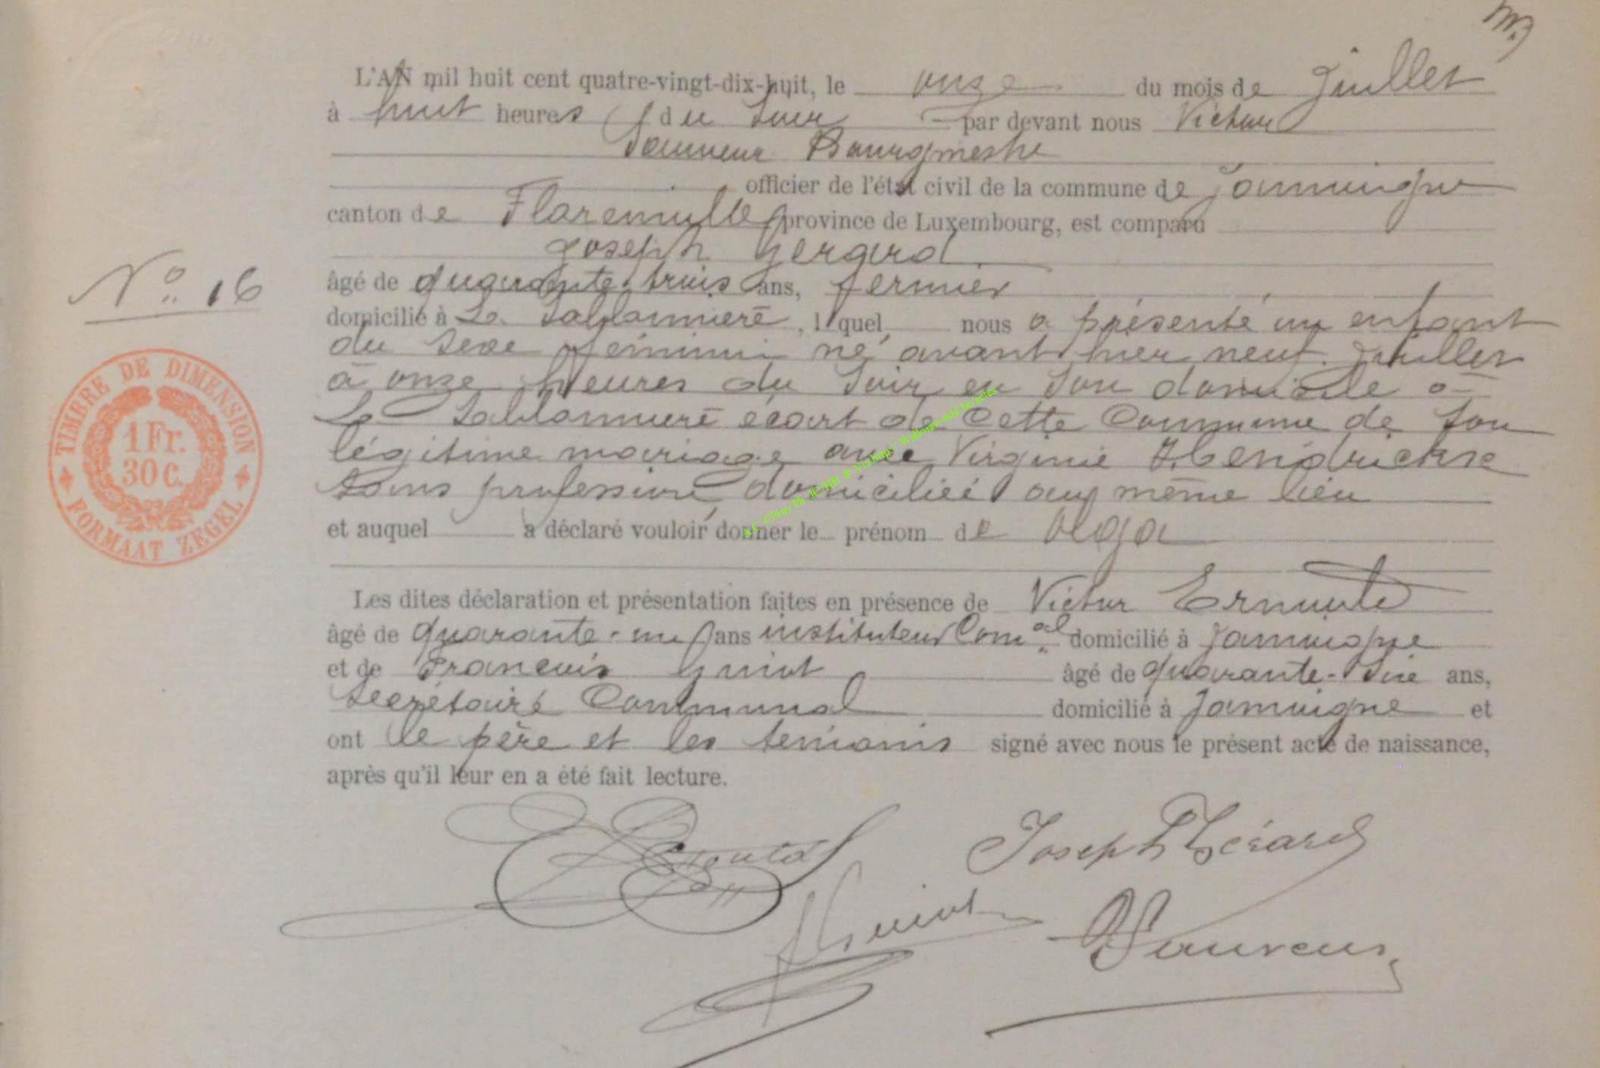 L'AN mil huit cent quatre-vingt-dix-huit, le onze du mois de Juillet
à huit heures du soir par devant nous Victor
Sauveur Bourgmestre
officier de l'état civil de la commune de Jamoigne
canton de Florenville province de Luxembourg, est comparu
Joseph Gérard
N° 16
âgé de quarante-trois ans, fermier
domicilié à La Sablonnière, lequel nous a présenté un enfant
du sexe féminin né avant hier neuf Juillet
à onze heures du soir en son domicile à
La Sablonnière écart de cette Commune de son
légitime mariage avec Virginie Hendrickse
sans profession, domiciliée au même lieu
et auquel a déclaré vouloir donner le prénom de Olga
Les dites déclaration et présentation faites en présence de Victor
âgé de quarante-un ans instituteur Com.al domicilié à Jamoigne
et de François Guiot âgé de quarante-six ans,
Secrétaire Communal domicilié à Jamoigne et
ont le père et les témoins signé avec nous le présent acte de naissance,
après qu'il leur en a été fait lecture.
TIMBRE DE DIMENSION
1 Fr.
30 c.
FORMAAT ZEGEL
Joseph Gérard
Guiot
Sauveur